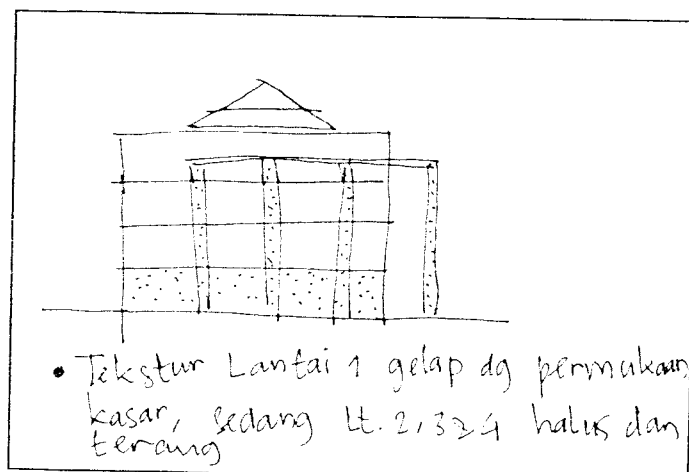 • Tekstur Lantai 1 gelap dg permukaan
kasar, sedang Lt. 2, 3 & 4 halus dan
terang